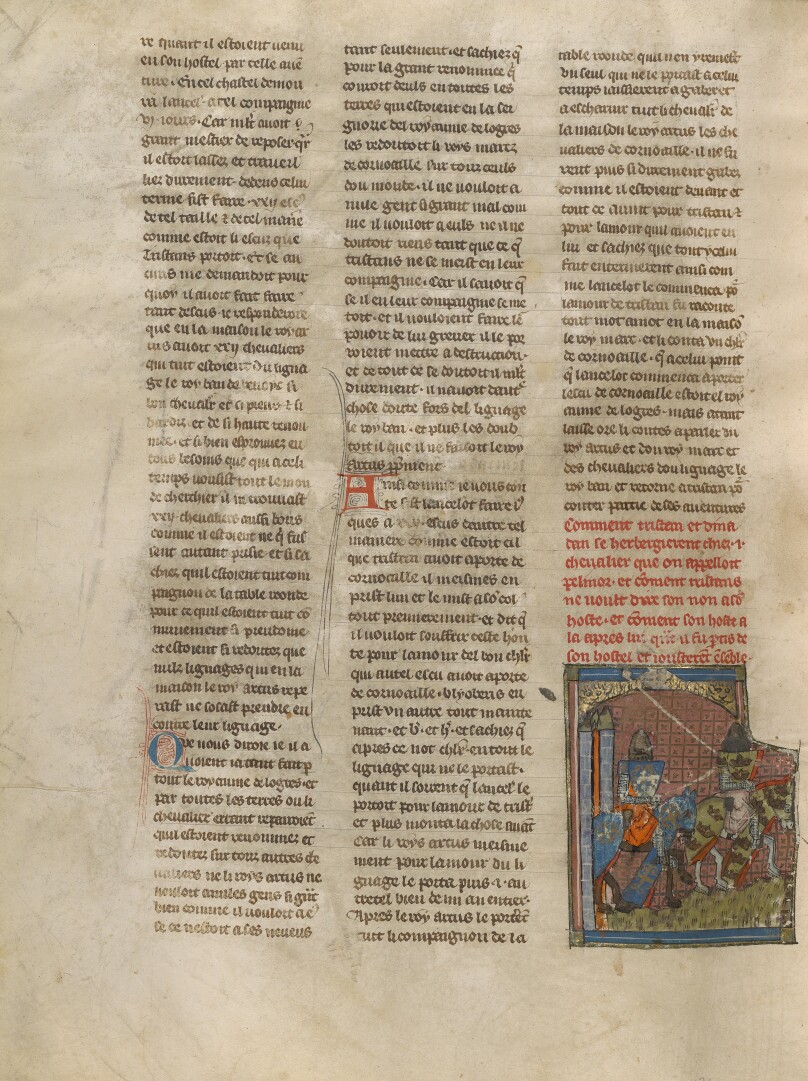 re quant il estoient uenu
en son hostel par celle auē
ture. En cel chastel demou
ra lancel. a tel compaignie
vj iours. Car mlt auoit
grant mestier de reposer qr
il estoit lasses et trauell
lies durement. dedens celui
terme fist faire. xxij esc
de tel taille z de tel manie
comme estoit li escus que
Tristans portoit. et se au
cuns me demandoit pour
quoy il auoit fait faire
tant descus. ie responderoie
que en la maison le roy ar
tus auoit xxij cheualiers
qui tuit estoient du ligna
ge le roy ban de
bon cheualr et si preus z si
hardis et de si haute renou
mee. et si bien esprouues en
tous besoins que qui a celi
temps uousist tout le mon
de cherchier il ne trouuast
xxij. cheualiers aussi bons
comme il estoient ne q̄ fus
sent autant prisie et si sa
chies quil estoient tuit com
paignon de la table reonde
pour ce quil estoient tuit cō
munement si preudome
et estoient si redoutes que
nulz lignages qui en la
maison le roy artus repe
rast ne sosast prendre en
contre leur lignage.
Que nous diroie ie il a
uoient ia tant fait p
tout le royaume de logres. et
par toutes les terres ou li
cheualier errant repairoiēt
quil estoient renoumes et
redoutes sur tous autres che
ualiers ne li roys artus ne
uouloit armles gens si grāt
bien comme il uouloit a c
se ce nestoit a ses neueus
tant seulement. et sachiez q̄
pour la grant renoumee q̄
couroit deuls en toutes les
terres qui estoient en la sei
gnorie del royaume de logres
les redoutoit li roys marcz
de cornoaille sur tous ceuls
dou monde. il ne uouloit a
nulle gent si grant mal com
me il uouloit a euls ne il ne
doutoit riens tant que ce q̄
tristans ne se meist en leur
compaignie. Car il sauoit q̄
se il en leur compaignie se me
toit. et il uouloient faire lē
pouoir de lui greuer il le por
roient mettre a destruction.
et de tout ce se doutoit il mlt
durement. il nauoit doute
chose doute fors del lignage
le roy ban. et plus les doub
toit il que il ne faisoit le roy
Artus ppment
Ainsi comme ie uous con
te fist lancelot faire i
ques a xxij. escus dautre tel
maniere comme estoit cil
que tristan auoit aporte de
cornoaille il meismes en
prist lun et le mist a sō col
tout premierement. et dit q̄
il uouloit souffrir ceste hon
te pour lamour del bon chlr
qui autel escu auoit aporte
de cornoaille. blyoberis en
prist vn autre tout mainte
nant. et b. et h. et sachiez q̄
apres ce not chlr. en tout le
lignage qui ne le portast.
quant il sorent q̄ lancel le
portoit pour lamour de trist
et plus monta la chose auāt
Car li roys artus meisme
ment pour lamour du li
gnage le porta puis .i. an
tretel bien demi an entier.
Apres le roy artus le portēt
tuit li compaignon de la
table reonde quil nen y remest
vn seul qui ne le portast a celui
temps laissierent a gaber et
a escharnir tuit li cheualr de
la maison le roy artus les che
ualiers de cornoaille. il ne fu
rent puis si durement gabes
comme il estoient deuant et
tout ce auint pour tristan z
pour lamour quil auoient en
lui et sachies que tout ycelui
fait entierement ainsi com
me lancelot le commenca po
lamour de tristan fu raconte
tout mot a mot en la maiso
le roy marc. et li conta vn chr
de cornoaille. q̄ a celui point
q̄ lancelot commenca a porter
lescu de cornoaille estoit el roy
aume de logres. mais atant
laisse ore li contes a parler du
roy artus et dou roy marc et
des cheualiers dou lignage le
roy ban et retorne a tristan po
conter partie de ses auentures
Comment tristan et dina
dan se herbergierent chies .i.
cheualier que on appelloit
pelinor. et cōment tristans
ne voult dire son non a sō
hoste. et cōment son hoste a
la apres lui quāt il fu ptis de
son hostel et iousterēt ēsēble.